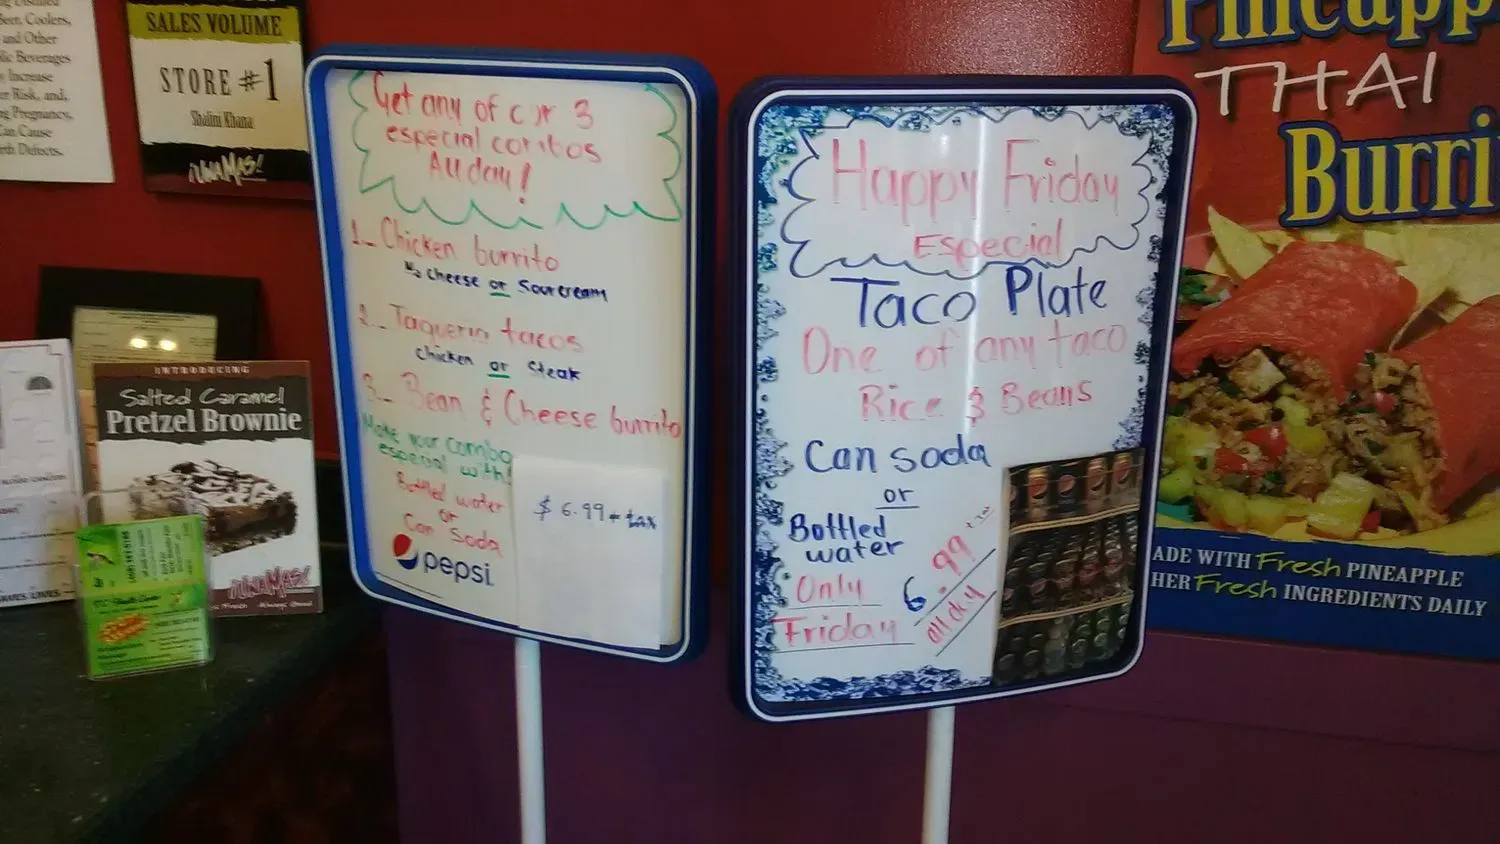 Beer, Coolers,
and Other
Beverages
Increase
Risk, and,
Pregnancy,
Can Cause
Defects.
SALES VOLUME
STORE #1
Shalini Khana
¡UNA MAS!
INTRODUCING
Salted Caramel
Pretzel Brownie
¡UNA MAS!
Get any of our 3
especial combos
All day!
1._ Chicken burrito
No Cheese or Sour cream
2._ Taqueria tacos
Chicken or Steak
3._ Bean & Cheese burrito
Make your combo
especial with!
Bottled water
or
Can Soda
pepsi
$ 6.99 + tax
Happy Friday
Especial
Taco Plate
One of any taco
Rice & Beans
Can soda
or
Bottled
water
Only
Friday
6.99 + tax
all day
THAI
MADE WITH Fresh PINEAPPLE
Fresh INGREDIENTS DAILY